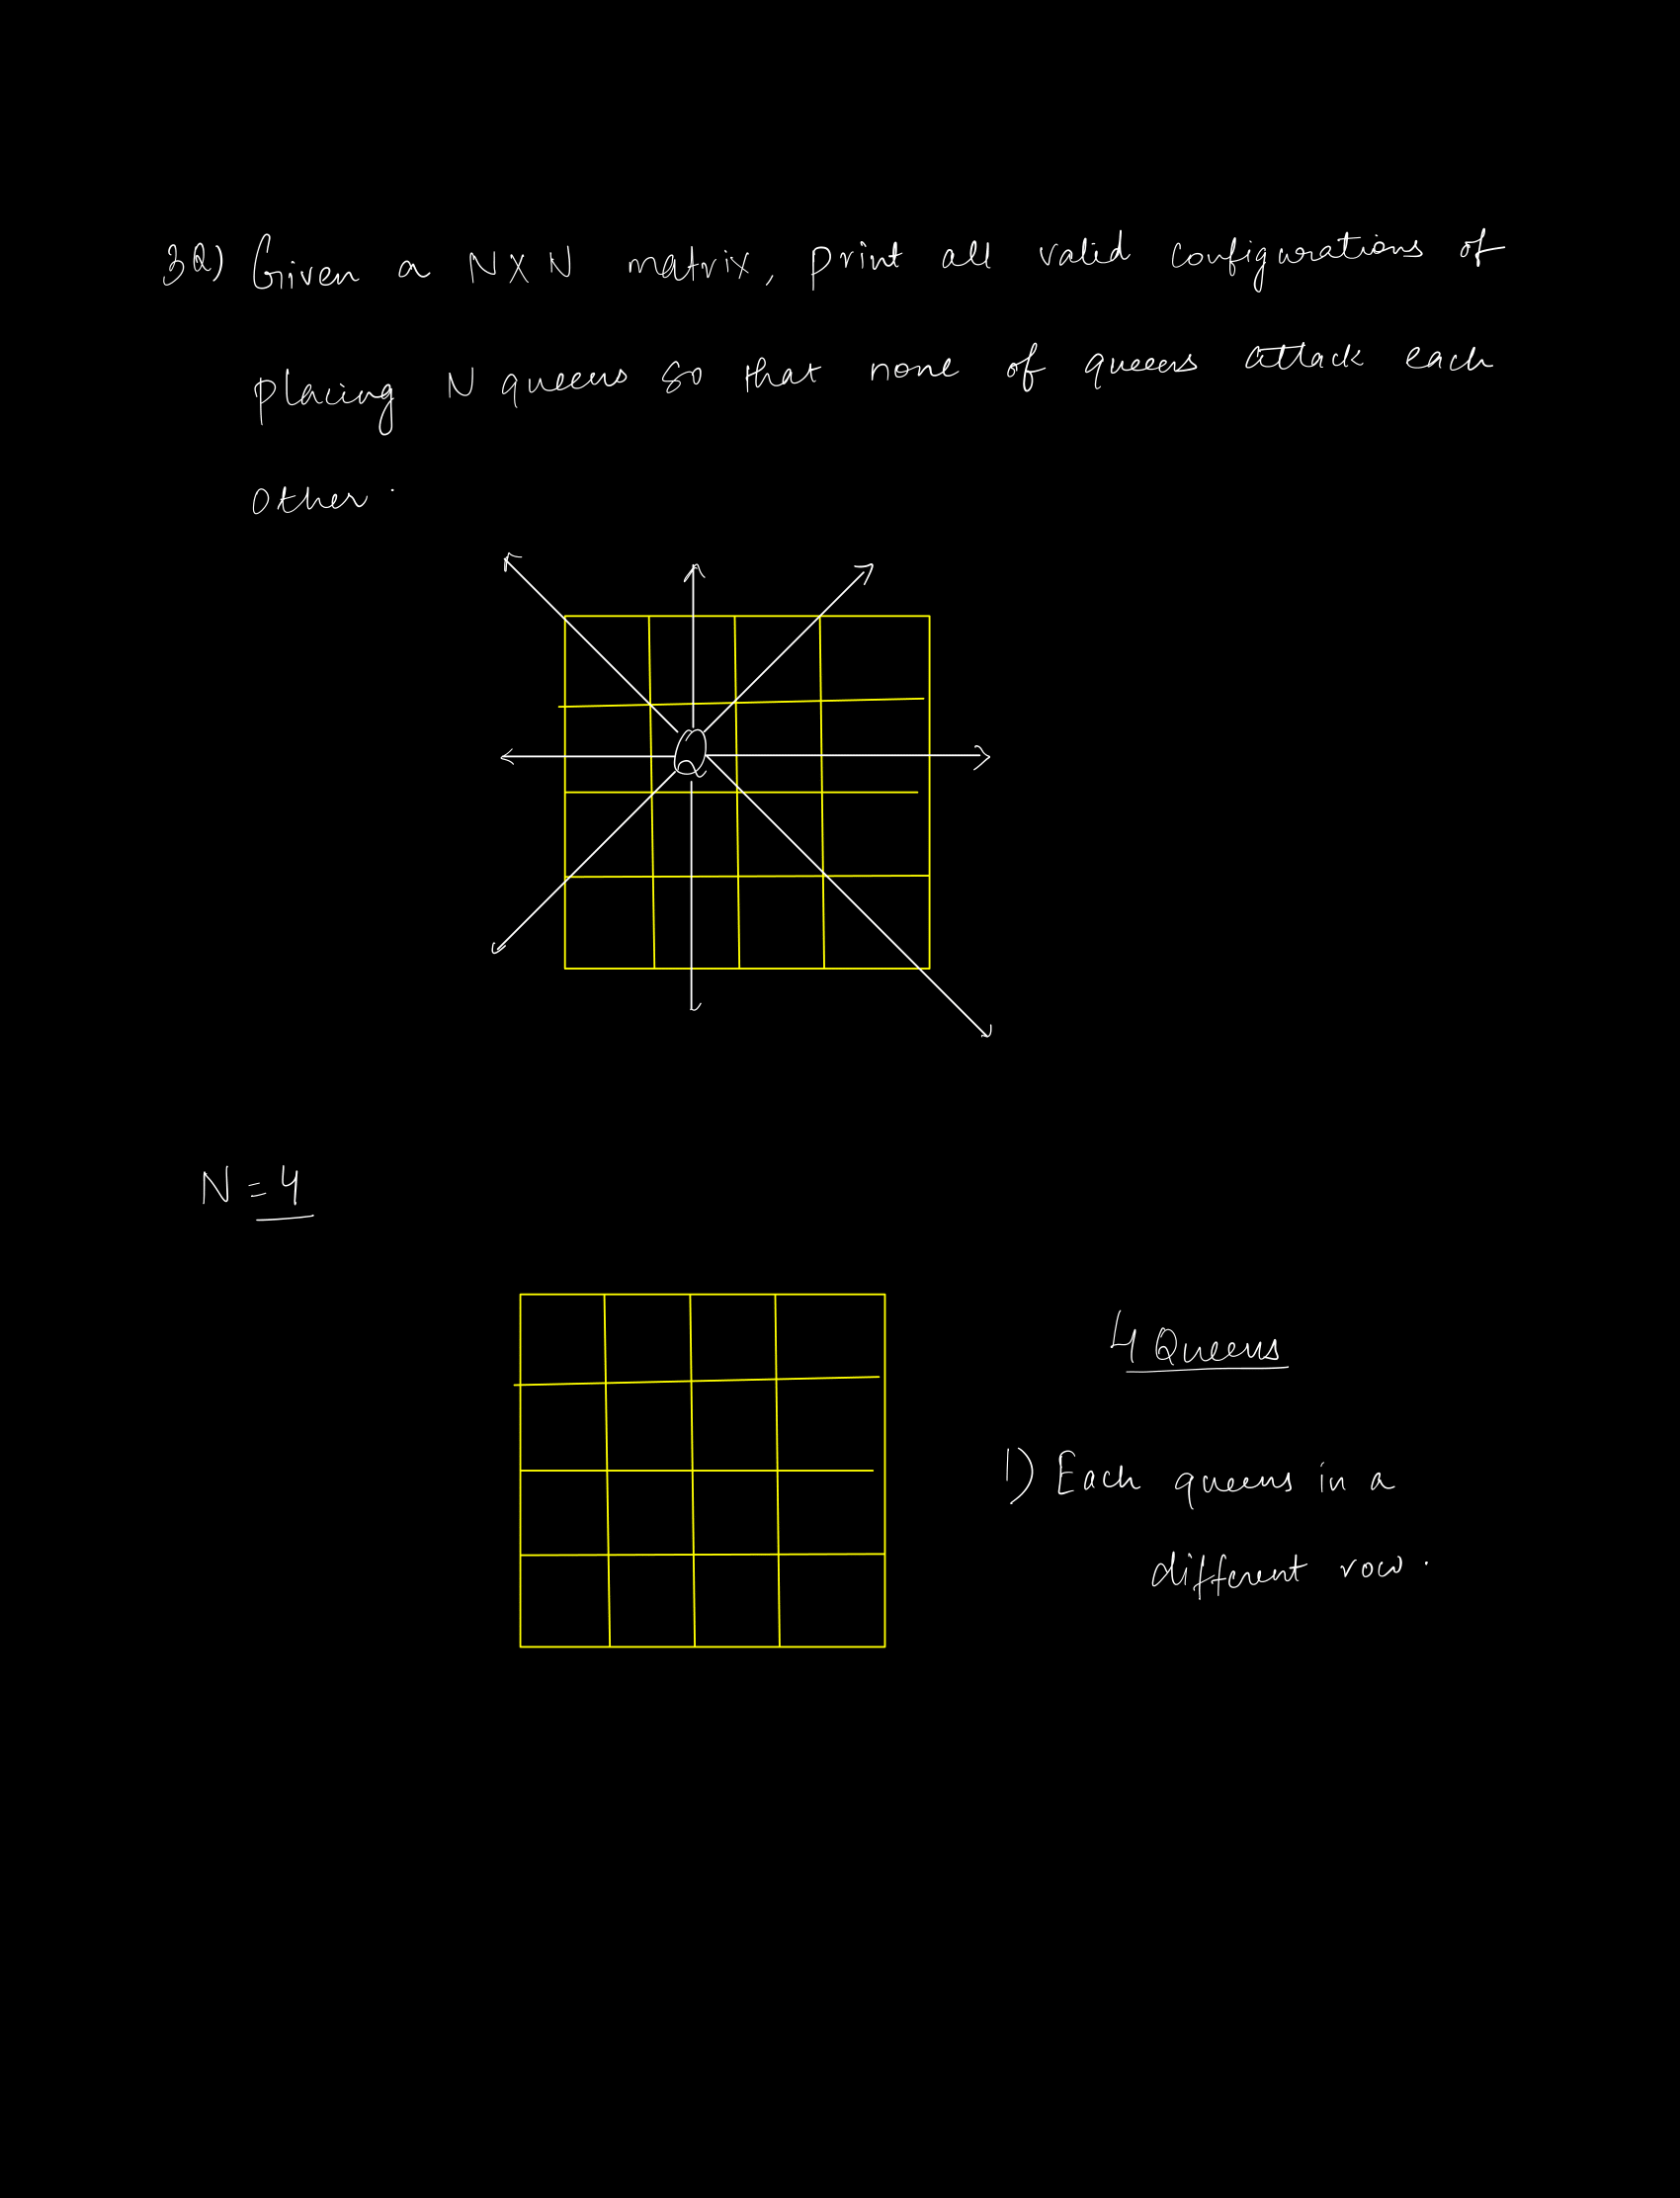 3Q) Given a NXN matrix, print all valid configurations of
placing N queens so that none of queens attack each
other.
Q
N = 4
4 Queens
1) Each queens in a
different row.